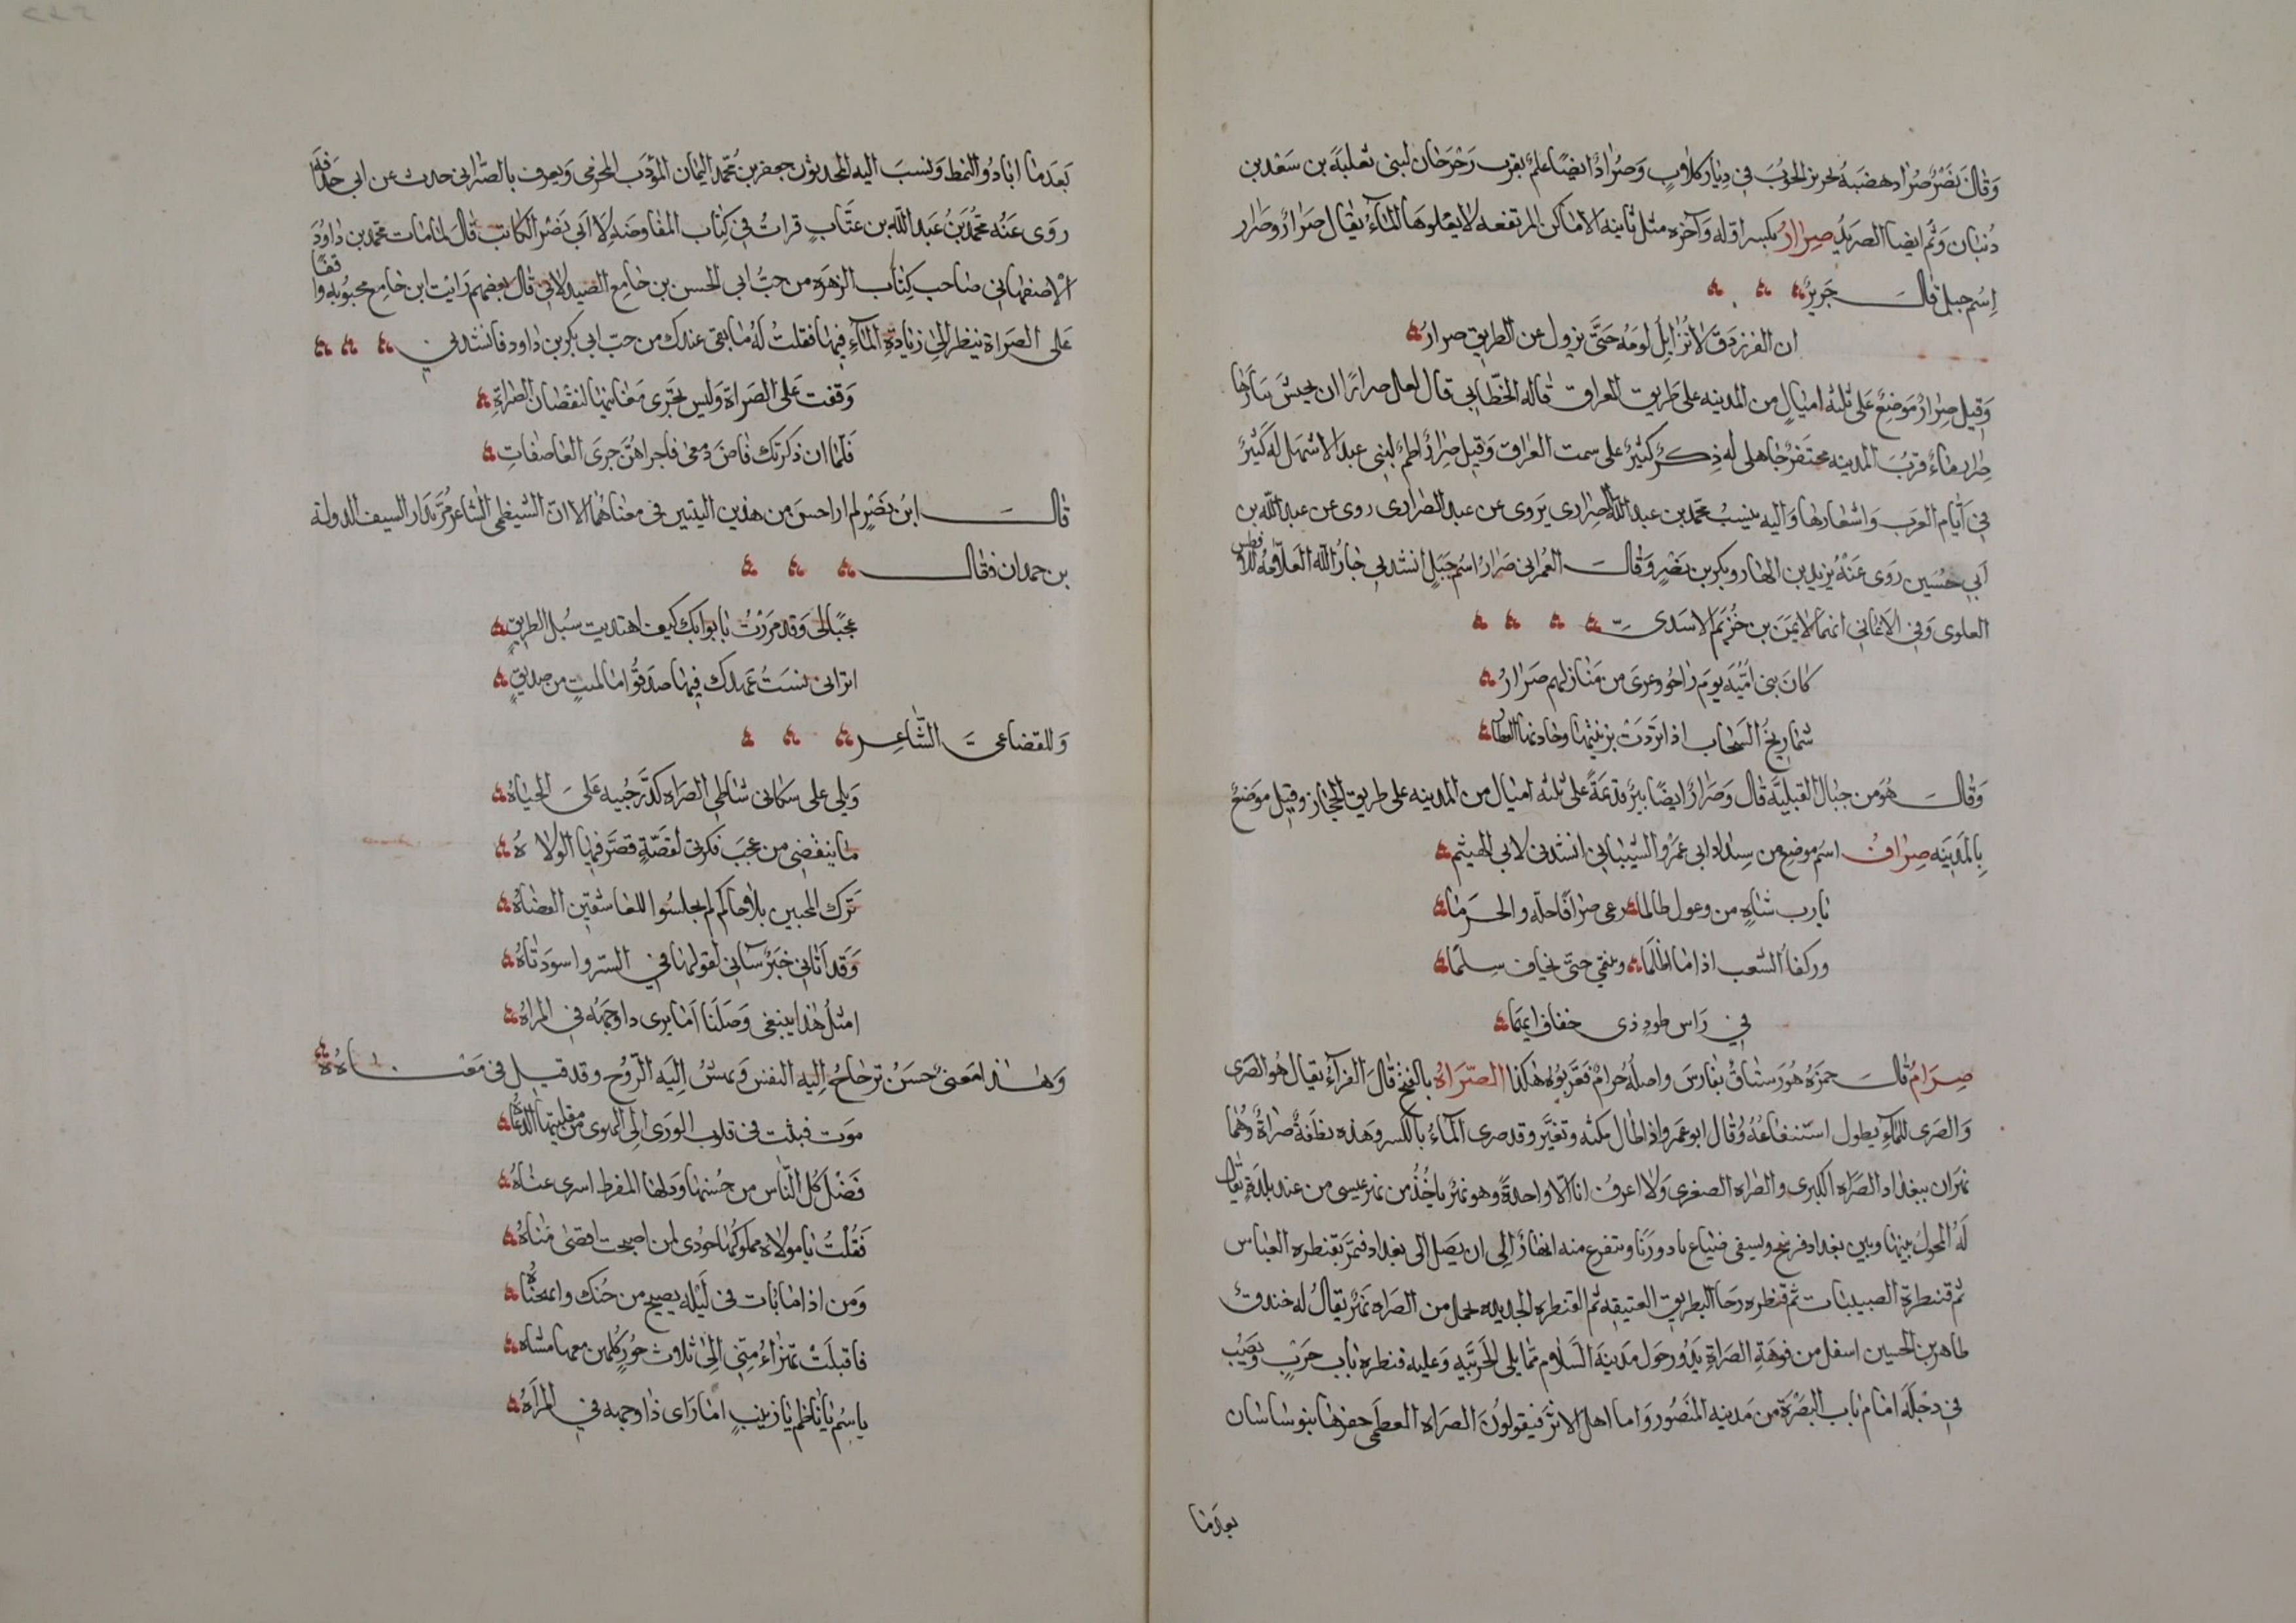 وَقَالَ نَصْرٌ صُرَاد هضبة بحزيز الحوب في ديار كلاب وَصُرَادٌ ايضًا علم بقرب رَحْرَحَان لبني ثعلبَة بن سَعْد بن
ذُبيان وَثَم ايضا الصريد صِرَارُ بكسر اوله وَآخره مثل ثانيه الاماكن المرتفعه لا يعْلوهَا المآءُ يقال صَرَارٌ وصَرَار
اِسْم جبل قالَ جَرِيرٌ
ان الفرزدق لا تُزايل لومَه حَتَّى يزول عن الطريق صرارُ
وَقيل صِرارٌ مَوضِعٌ عَلى ثلثه اميالٍ من المدينه على طريق العراق قاله الخطابي قال لعل صرارًا ان يجيش بيَارُها
صرار ماءٌ قربُ المدينه محتفر جَاهلي له ذِكرٌ كثيرٌ على سمت العراق وَقيل صِرارٌ اطم لبني عبد الاشهل له كَثيرٌ
في ايّام العَرَب وَاشعَارها وَاليه ينسبُ محمد بن عبد الله الصِرَارى يروى عن عبد الصرارى روى عن عبد الله بن
اَبي حُسَين روَى عَنْهُ يزيد بن الهاد وبكر بن نَصْرٍ وقالَ العُمراني صَرَارُ اسْم جَبَلٍ انشدني جَارُ الله العَلّامَة
العلوى وَفي الاغاني انهما لايمَن بن خُزيم الاسَدى
كانَ بني اُمَيَّه يَوم رَاحُو وعرىَ من مَنَازلهم صَرَارُ
شماريخُ السَحَاب اذا تردَّت بزينتها وجَادتها القطَارُ
وَقالَ هُوَ من جبَال القبليَّه قال وَصَرَارُ ايضًا بيْرٌ قديمَةٌ على ثلثه اميال من المدينه على طريق الحجَاز وقيل مَوضِعٌ
بِالمَدينَه صِرَافُ اسْم موضِع من
يارب شاةٍ من وعول طالما رعى صرَافًا حله والحَرَما
وركفا الشعب اذا ما اظلَمَا وينتمى حتى يخاف سلمَا
في رَاس طودٍ ذى خفاف ايهَمَا
صِرَامُ قالَ حمزَه هُوَ رستاقٌ بفارسَ واصلُه جُرامُ فعَرّبوُه هكذا الصَّرَاهُ بالفتحِ قالَ الفرّآءُ يقال هُو الصَرى
وَالصرى للمآءِ يطول استنقاعُهُ وقال ابو عمرو اذا طال مكثه وتغيَّر وقد صرى المآءُ بالكسر وهَذه نطفةٌ صَراةٌ وهُما
نهرَان ببغداد الصَّرَاه الكبرى والصَراه الصغرى وَلا اعرفُ انا الا واحدةً وهو نهرٌ ياخُذ من نهر عيسى من عند بلدةٍ يُقال
لهُ المحول بينها وبين بغداد فرسخ ويسقى ضيَاع بادورَيا ويتفرع منه انهارٌ الى ان يَصل الى بغداد فيمَرّ بقنطره العبّاس
ثم قنطرة الصبيبَات ثم قنطره رحَا البطريق العتيقه ثم القنطره الجديده يحمل من الصَراه نَهرٌ يقالُ له خندق
طاهر بن الحسين اسفل من فوهَةِ الصَراةِ يَدُورُ حَول مَدينَة السَّلام مما يلى الحَربيَّه وَعليه قنطرهُ بَاب حَرْبٍ وَيَصُبُّ
في دجْلَه امَام بَاب البصْرَة من مَدينه المَنْصُور وَاما اهل الاثر فيقولوُنَ الصَرَاه العظمى حفرهَا بنو سَاسَان
بعدَما
بَعَدمَا ابادُو النبط وَنسَب اليه المحدثون جعفر بن مُحمّد اليمَان المؤدب المخرمى وَيعرف بالصّرَاتي حدث عن ابى حذافة
روَى عَنْه محمّدُ بنُ عَبد الله بن عتَّاب قراتُ في كتَاب المفَاوضَه لابى نصْر الكاتب قالَ لما مَات محمد بن دَاوُدَ
الاصفهاني صَاحب كِتَاب الزهرَه من حبّ ابى الحسن بن جَامِع الصيدلاني قالَ بَعضهم رَايت ابن جَامِع محبُوبه واقفًا
عَلى الصَرَاة ينظر الى زيَادةِ المآءِ فيها فقلتُ لهُ مَا بقى عندك من حبّ ابى بكر بن دَاود فانشدني
وَقفت عَلى الصَرَاة وَليس تجرى مَعَاينها لنقصَان الصَراةِ
فلمّا ان ذكَرتك فاضَ دَمعى فاجراهُنَّ جرىَ العَاصفَاتِ
قالَ ابن نَصْرٍ لم ار احسَن من هذين البيتين في معنَاهُما الا انّ الشيظمى الشاعر مُرّ بدَار السيف الدولة
بن حمدان فقالَ
عجَبًا لى وَقد مَرَرْتُ بابوابك كيف اهتديت سُبل الطريقِ
اترانى نسَيتُ عَهدك فيها صدَقوُ اما لميت من صَديقٍ
وَللقضاعى الشّاعر
وَيلى على سَاكنى شاطى الصَراه كدَّر حُبيه عَلىَّ الحيَاهْ
مَا ينقضى من عجَب فكرتى لقَصّةٍ قصّر فيها الولاهْ
تَرك المحبين بلا حَاكم لم يجلسُوا للعَاشقين القضَاهْ
وَقد اَتَاني خبَرٌ سَاني لقولهَا في السّر واسوَتَاهْ
امثلُ هَذا يبتغى وَصلَنَا اَمَا يرى ذا وجهَهُ في المراهْ
وَهذا مَعنىً حسَنٌ ترتاحُ اِليه النفس وَيهشّ اِليَه الرّوح وقد قيل في مَعْنَاهُ
فَضَل كُل النّاس من حُسنهَا
فَقُلْتُ يَا مولاة مملوكهَا جُودى لمن اصبحت اقصَى مُنَاهْ
وَمن اذا مَا بَات في لَيلةٍ يصيح من حُبّك
فاقبلَتْ تهزاءُ مِنّى اِلى ثلاث حُورٍ كُلهن معها مشاه
ياسْم يافَاطم يا زينب امَا رَاى ذا وجهه في المرَآهْ